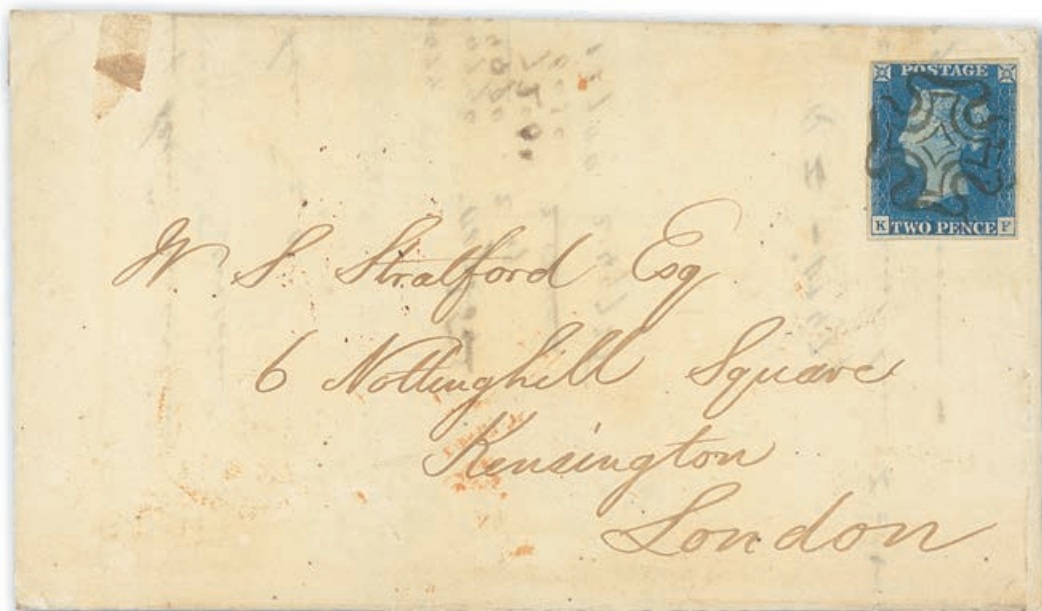 POSTAGE
K TWO PENCE F
W. S. Stratford Esq
6 Nottinghill Square
Kensington
London